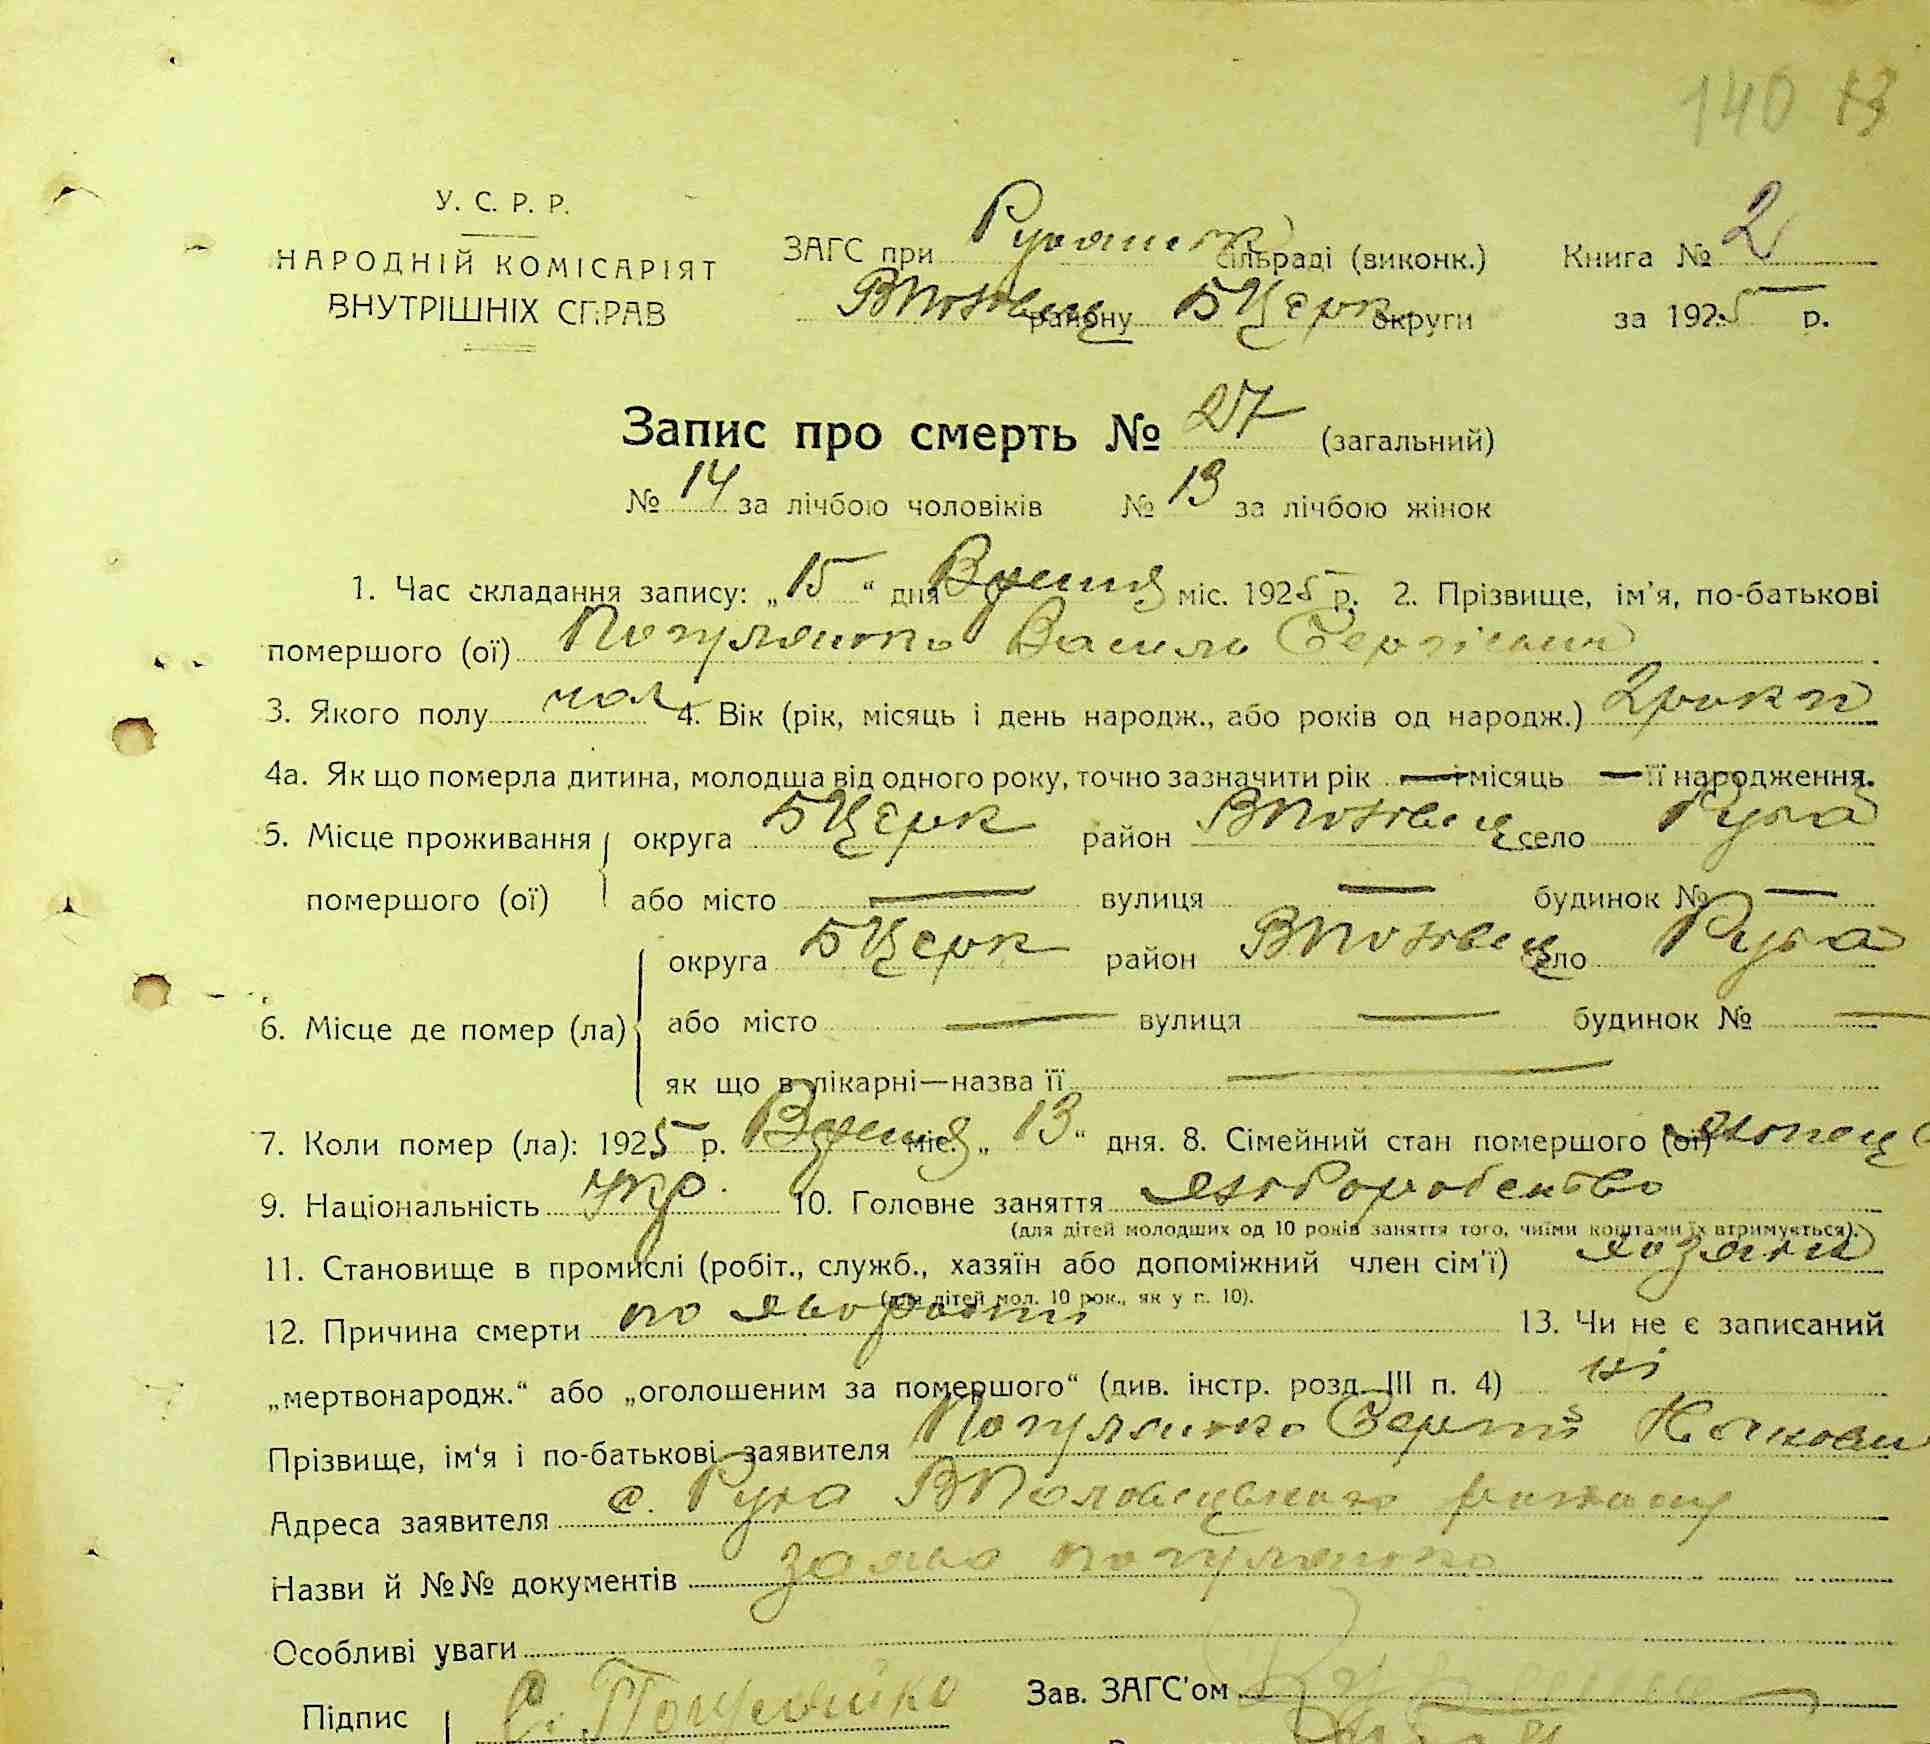 140 13
У. С. Р. Р.
НАРОДНІЙ КОМІСАРІЯТ
ВНУТРІШНІХ СПРАВ
ЗАГС при сільраді (виконк.) Книга № 2
району БЦерк округи за 1925 р.
Запис про смерть № 27 (загальний)
№ 14 за лічбою чоловіків № 13 за лічбою жінок
1. Час складання запису: „15“ дня Вресня міс. 1925 р. 2. Прізвище, ім'я, по-батькові
помершого (ої) Василь Сергієвич
3. Якого полу чол 4. Вік (рік, місяць і день народж., або років од народж.) 2 роки
4а. Як що померла дитина, молодша від одного року, точно зазначити рік — і місяць — її народження.
5. Місце проживання округа БЦерк район село Руда
помершого (ої) або місто — вулиця — будинок № —
округа БЦерк район село Руда
6. Місце де помер (ла) або місто — вулиця — будинок № —
як що в лікарні—назва її —
7. Коли помер (ла): 1925 р. Вресня міс. „13“ дня. 8. Сімейний стан помершого (ої)
9. Національність укр. 10. Головне заняття хліборобство
(для дітей молодших од 10 років заняття того, чиїми коштами їх втримується).
11. Становище в промислі (робіт., служб., хазяїн або допоміжний член сім'ї) хазяїн
(для дітей мол. 10 рок., як у п. 10).
12. Причина смерти по хворости 13. Чи не є записаний
„мертвонародж.“ або „оголошеним за помершого“ (див. інстр. розд. III п. 4) ні
Прізвище, ім'я і по-батькові заявителя Сергій
Адреса заявителя с. Руда ВПоловецького району
Назви й №№ документів заява
Особливі уваги
Підпис С. Зав. ЗАГС'ом